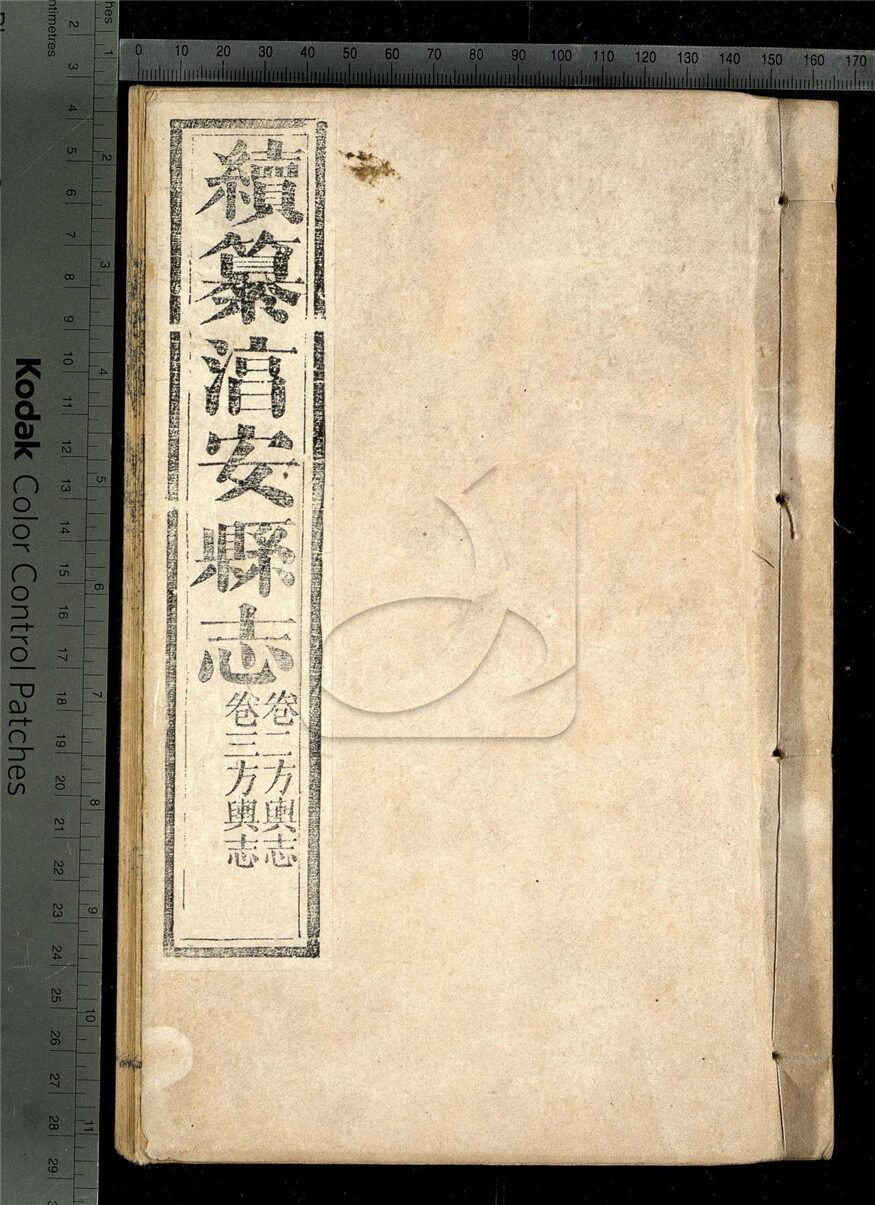 續纂淳安縣志
卷二方輿志
卷三方輿志
0 10 20 30 40 50 60 70 80 90 100 110 120 130 140 150 160 170
Kodak Color Control Patches
1 2 3 4 5 6 7 8 9 10 11
2 3 4 5 6 7 8 9 10 11 12 13 14 15 16 17 18 19 20 21 22 23 24 25 26 27 28 29